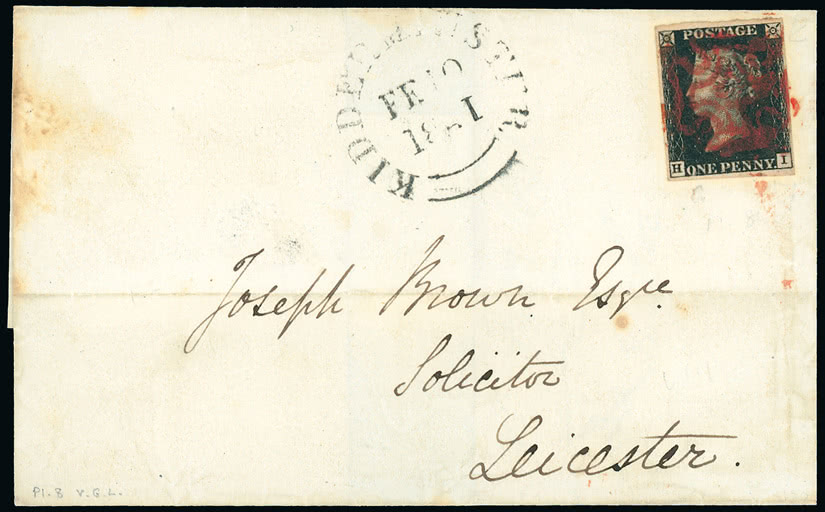 KIDDERMINSTER
FE 10
1841
POSTAGE
H ONE PENNY. I
Joseph Brown Esqre
Solicitor
Leicester.
Pl. 8 V.G.L.